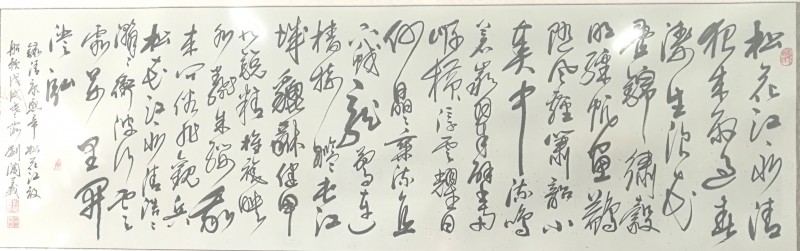 松花江江水清
夜来雨过春
涛生浪花
叠锦绣縠
明彩帆画鹢
随风轻箫韶小
奏中流鸣
苍岩翠壁两
岸横浮云耀日
何晶晶乘流直
下蛟龙惊连
樯接舰屯江
城貔貅健甲
皆锐精旌旄映
水翻朱缨我
来问俗非观兵
松花江江水清浩浩
瀚瀚冲波行云
霞万里开
澄泓
录清康熙帝松花江放
船歌戊戌